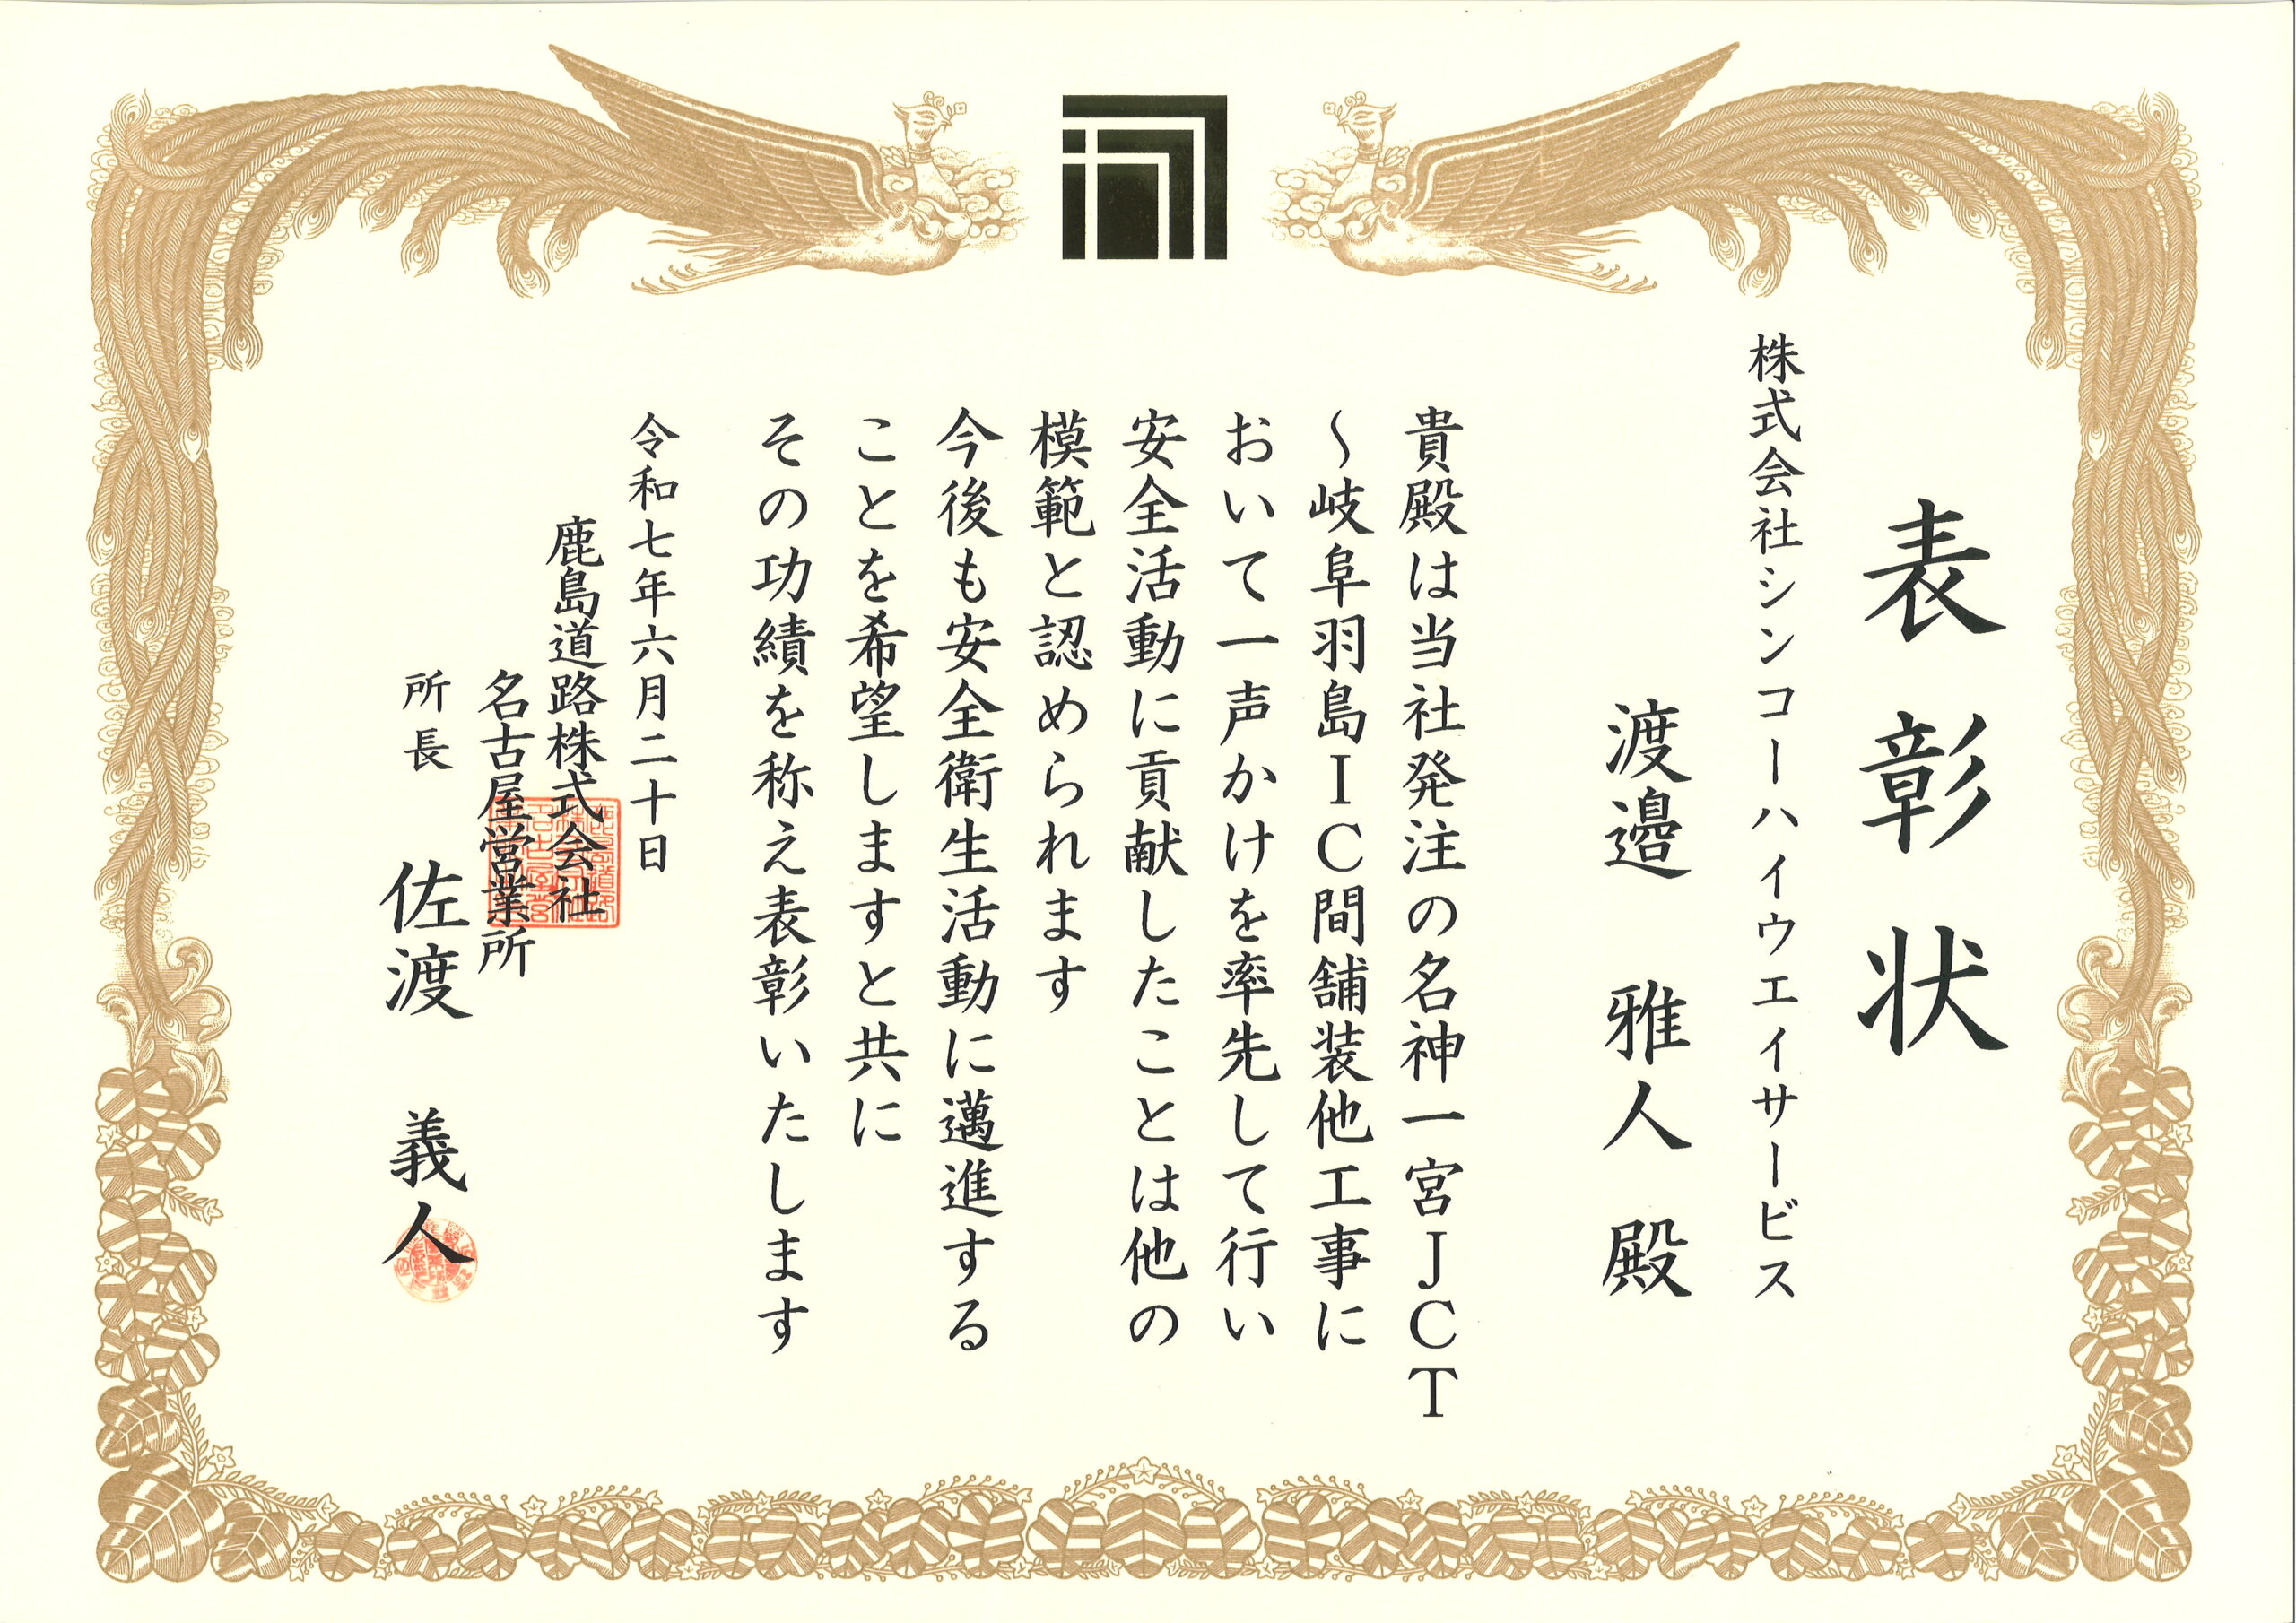 表彰状
株式会社シンコーハイウエイサービス
渡邉 雅人 殿
貴殿は当社発注の名神一宮JCT
～岐阜羽島IC間舗装他工事に
おいて一声かけを率先して行い
安全活動に貢献したことは他の
模範と認められます
今後も安全衛生活動に邁進する
ことを希望しますと共に
その功績を称え表彰いたします
令和七年六月二十日
鹿島道路株式会社
名古屋営業所
所長 佐渡 義人